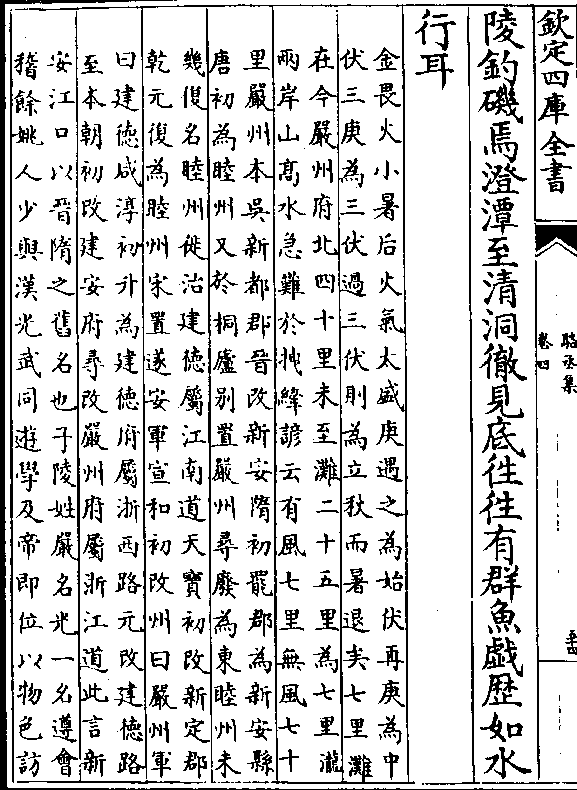 欽定四庫全書
卷四
陵釣磯焉澄潭至清洞徹見底往往有群魚戲歴如水
行耳
金畏火小暑后火氣太盛庚遇之為始伏再庚為中
伏三庚為三伏過三伏則為立秋而暑退矣七里灘
在今嚴州府北四十里未至灘二十五里為七里瀧
兩岸山髙水急難於抴縴諺云有風七里無風七十
里嚴州本吳新都郡晉改新安隋初罷郡為新安縣
唐初為睦州又於桐廬别置嚴州尋廢為東睦州未
幾復名睦州徙治建德屬江南道天寶初改新定郡
乾元復為睦州宋置遂安軍宣和初改州曰嚴州軍
曰建德咸淳初升為建德府屬浙西路元改建德路
至本朝初改建安府尋改嚴州府屬浙江道此言新
安江口以晉隋之舊名也子陵姓嚴名光一名遵會
稽餘姚人少與漢光武同遊學及帝即位以物色訪